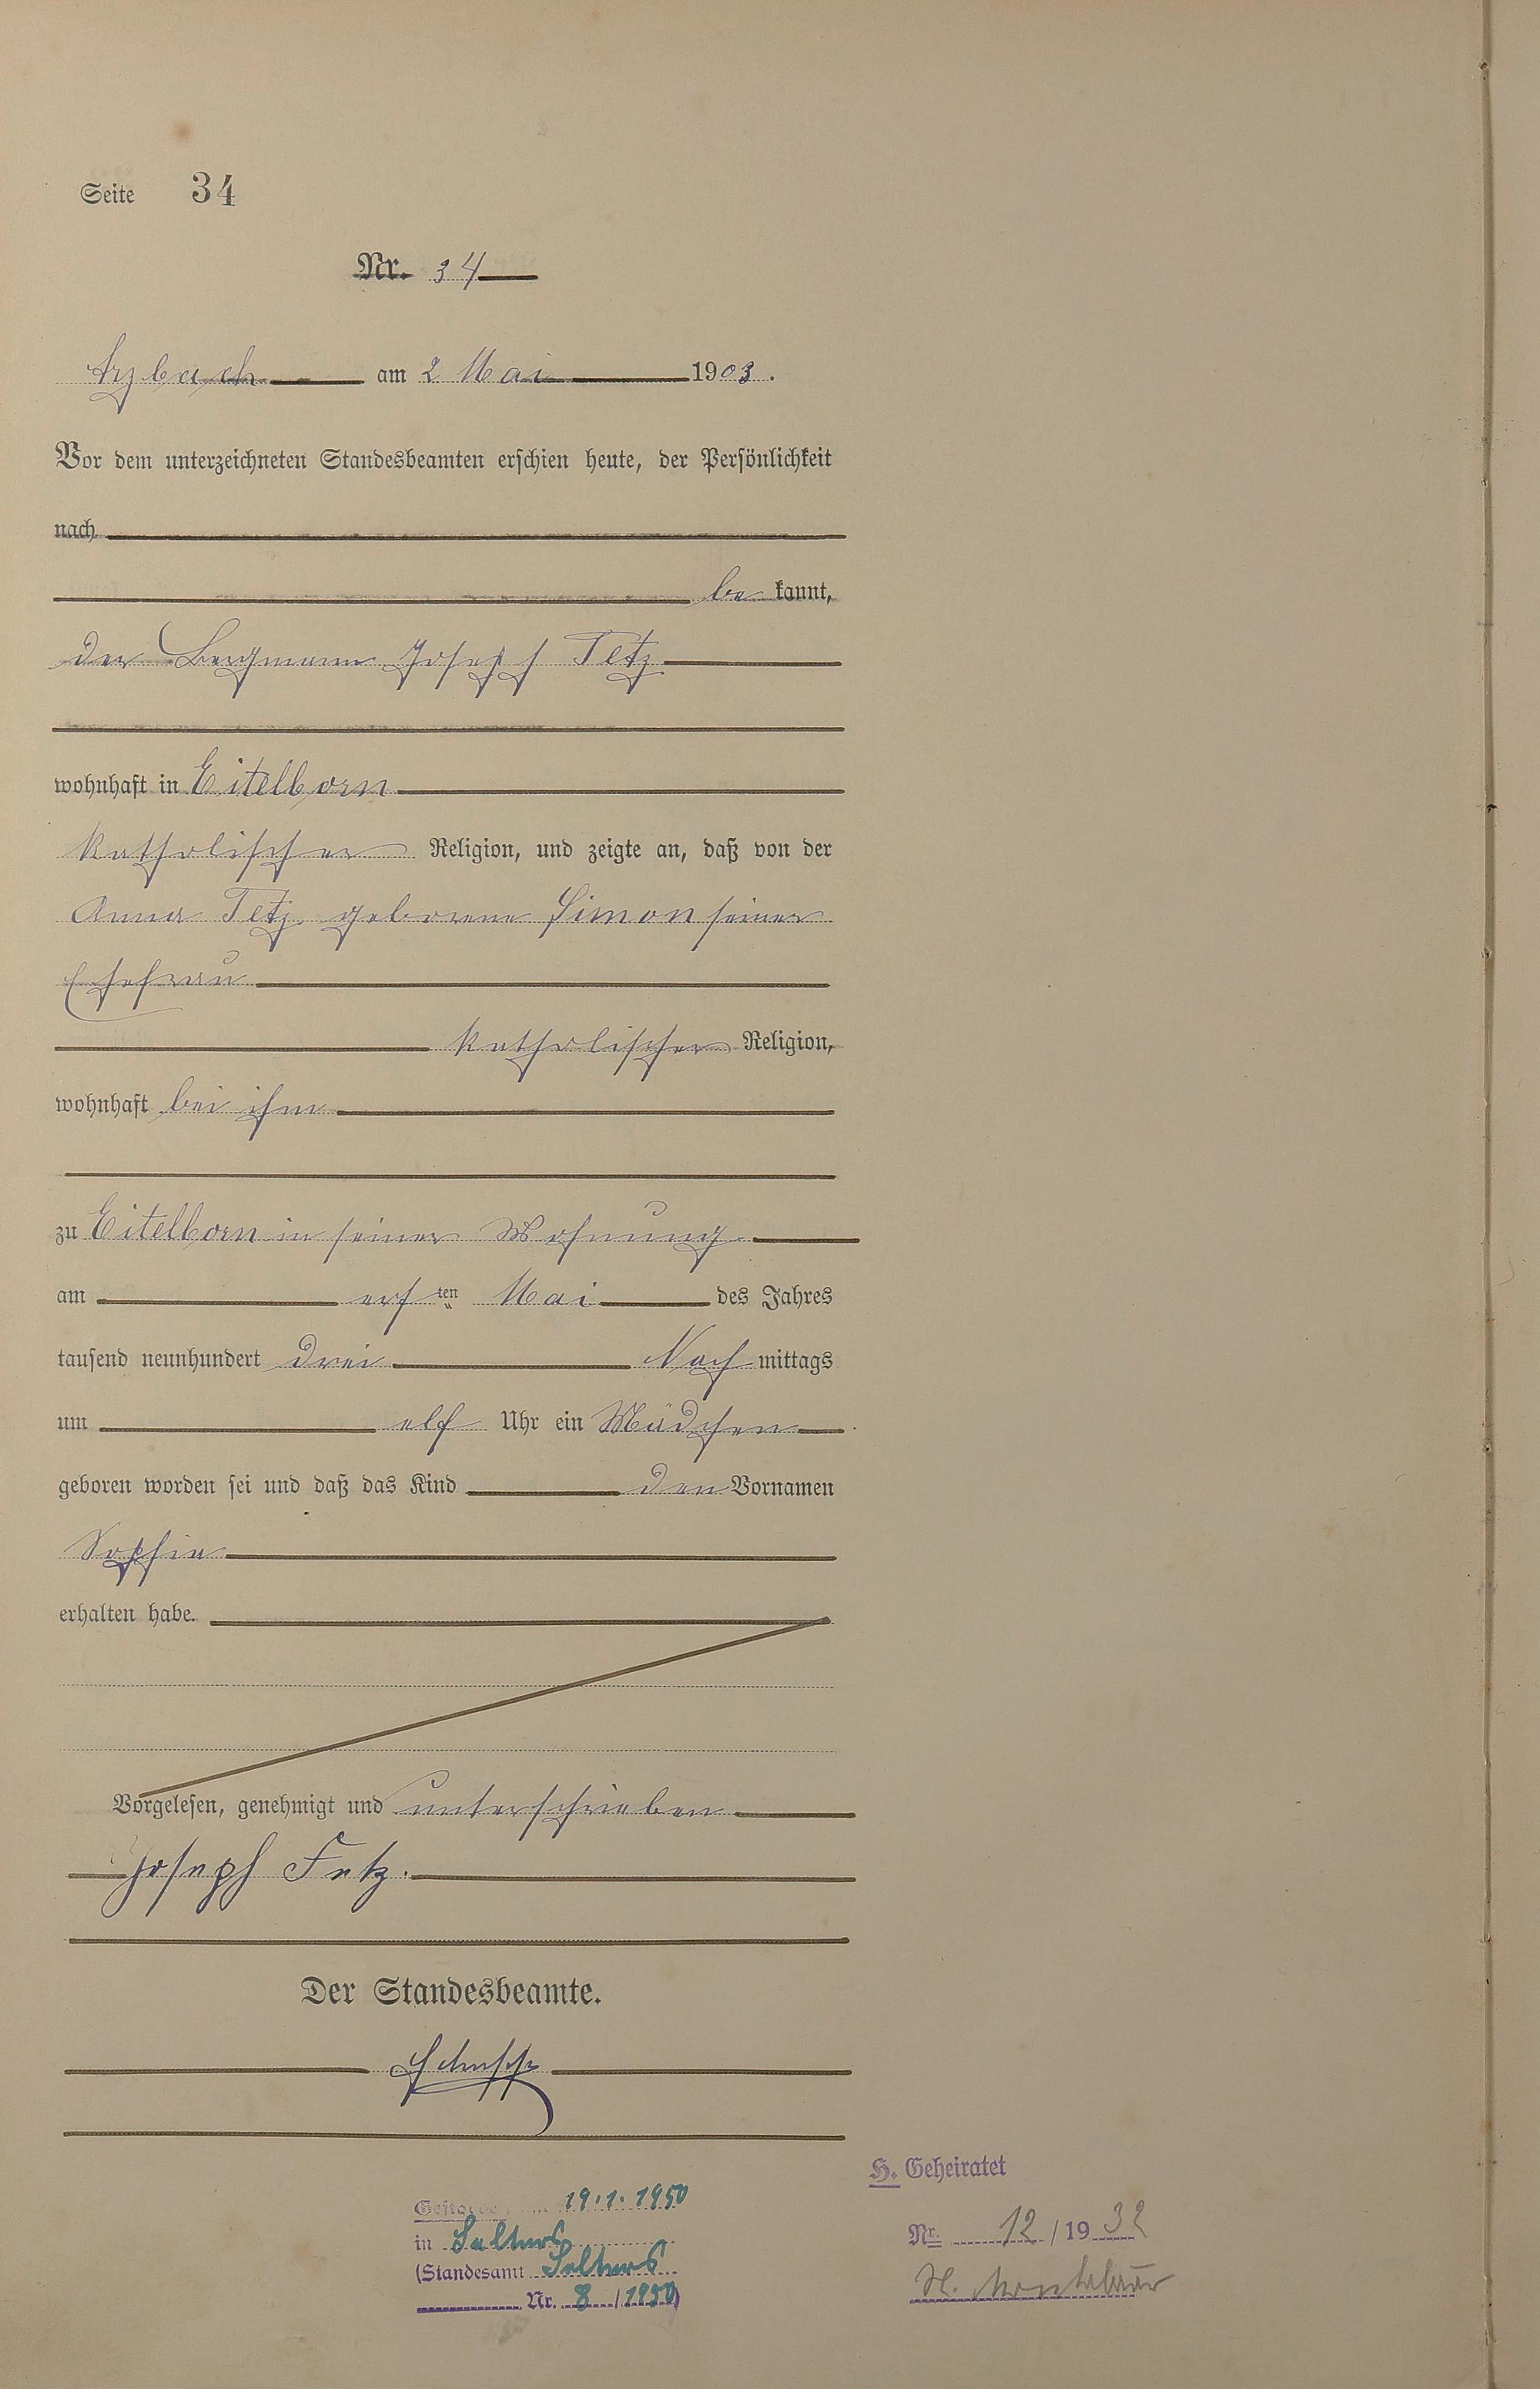 Seite 34
Nr. 34
Arzbach am 2 Mai 1903.
Vor dem unterzeichneten Standesbeamten erschien heute, der Persönlichkeit
nach
be kannt,
der Bergmann Joseph Fetz
wohnhaft in Eitelborn
katholischer Religion, und zeigte an, daß von der
Anna Fetz geborene Simon seiner
Ehefrau
katholischer Religion,
wohnhaft bei ihm
zu Eitelborn in seiner Wohnung
am ersten Mai des Jahres
tausend neunhundert drei Nachmittags
um elf Uhr ein Mädchen
geboren worden sei und daß das Kind den Vornamen
Sophia
erhalten habe.
Vorgelesen, genehmigt und unterschrieben
Joseph Fetz.
Der Standesbeamte.
H. Geheiratet
Nr. 12/1932
St. Montabaur
Gestorben 19.1.1950
in Selters
(Standesamt Selters
Nr. 8/1950)